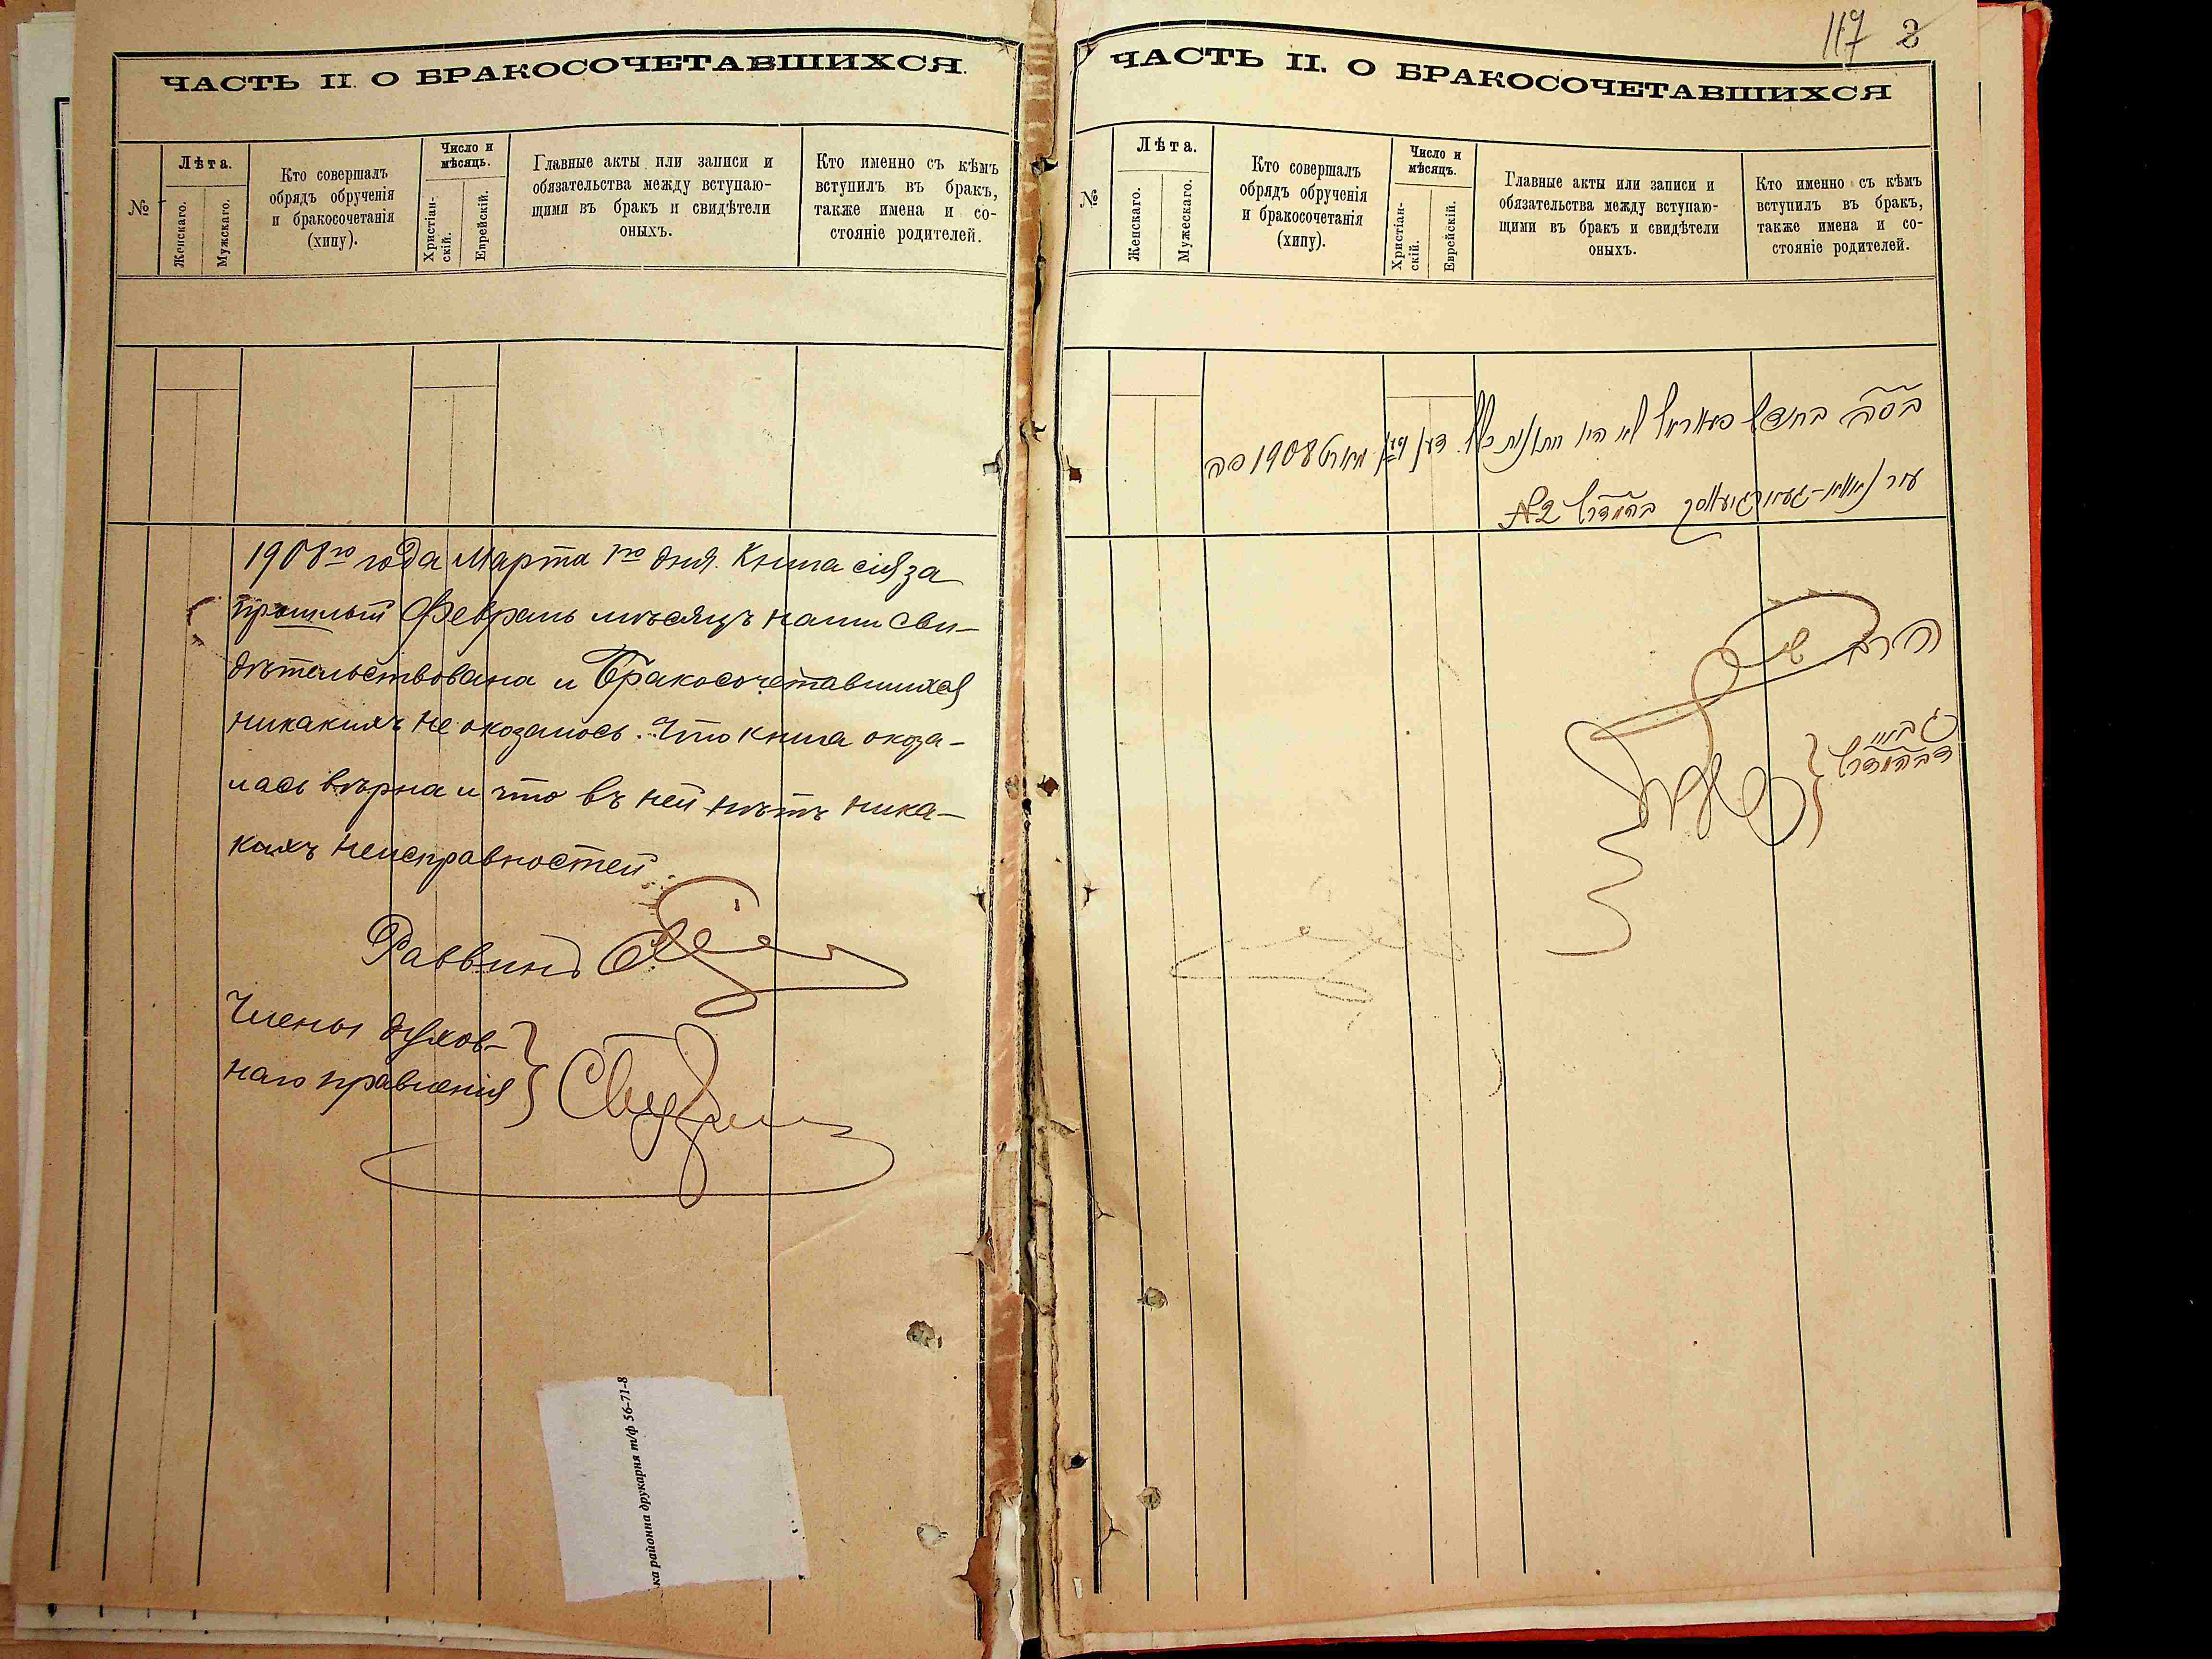 ЧАСТЬ II. О БРАКОСОЧЕТАВШИХСЯ.
№
Лѣта.
Женскаго.
Мужскаго.
Кто совершалъ
обрядъ обрученія
и бракосочетанія
(хипу).
Число и
мѣсяцъ.
Христіан-
скій.
Еврейскій.
Главные акты или записи и
обязательства между вступаю-
щими въ бракъ и свидѣтели
оныхъ.
Кто именно съ кѣмъ
вступилъ въ бракъ,
также имена и со-
стояніе родителей.
1908го года Марта 1го дня. Книга сія за
прошлый Февраль мѣсяцъ нами сви-
дѣтельствована и Бракосочетавшихся
никакихъ не оказалось. Что книга оказа-
лась вѣрна и что въ ней нѣтъ ника-
кихъ неисправностей.
Раввинъ
Члены духов-
наго правленія
ка районна друкарня т/ф 56-71-8
117 2
ЧАСТЬ II. О БРАКОСОЧЕТАВШИХСЯ
№
Лѣта.
Женскаго.
Мужескаго.
Кто совершалъ
обрядъ обрученія
и бракосочетанія
(хипу).
Число и
мѣсяцъ.
Христіан-
скій.
Еврейскій.
Главные акты или записи и
обязательства между вступаю-
щими въ бракъ и свидѣтели
оныхъ.
Кто именно съ кѣмъ
вступилъ въ бракъ,
также имена и со-
стояніе родителей.
בחודש לא היו חתונות כלל. 1908 פה
עיר №2
הרב
גבאי
דבהמדרש